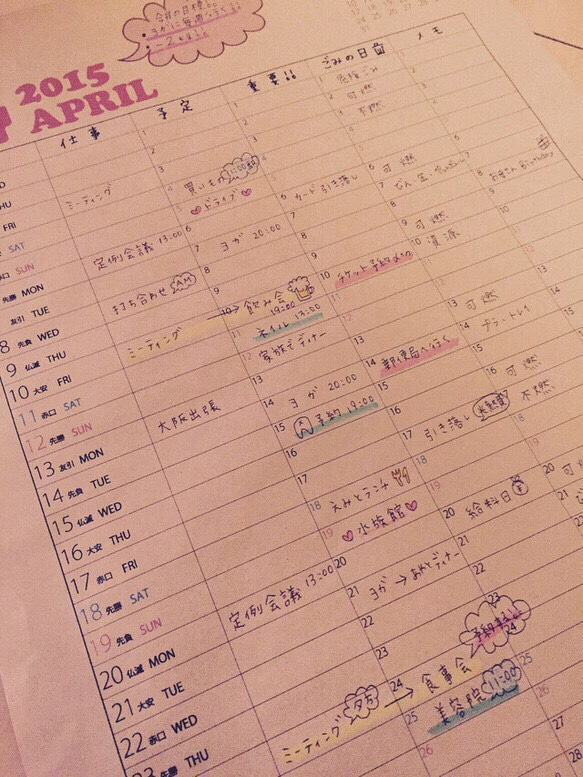 今月の目標
・ヨガに毎週行く!
2015
APRIL
仕事 予定 重要!! ごみの日 メモ
1 1 1 1
2 2 2 可燃
3 3 3 不燃
THU ミーティング
FRI
SAT 買いもの
SUN ♡ドライブ♡
先勝 MON 定例会議 13:00 6 6 カード引き落し 6 可燃
友引 TUE 7 ヨガ 20:00 7
8 先負 WED 打ち合わせ AM 8 8 8 お母さん Birthday
9 仏滅 THU 9 9 9 可燃 9
10 大安 FRI ミーティング → 飲み会 19:00 10 チケット予約 10 資源
11 赤口 SAT 11 ネイル 13:00 11
12 先勝 SUN 12 家族でディナー 12
13 友引 MON 13 13 13 可燃 13
14 先負 TUE 大阪出張 14 ヨガ 20:00 14 郵便局へ行く 14 14
15 仏滅 WED 15 予約 19:00 15 15 15
16 大安 THU 16 16 16 可燃
17 赤口 FRI 17 17 引き落し 光熱費 17 不燃
18 先勝 SAT 18 えみとランチ 18 18
19 先負 SUN 19 ♡水族館♡ 19 19
20 仏滅 MON 定例会議 13:00 20 20 給料日 ¥ 20 可
21 大安 TUE 21 ヨガ → ディナー 21 21
22 赤口 WED 22 22 22
23 先勝 THU 23 23
ミーティング 夕方 → 24 食事会 24
25 美容院 11:00 25
26 26